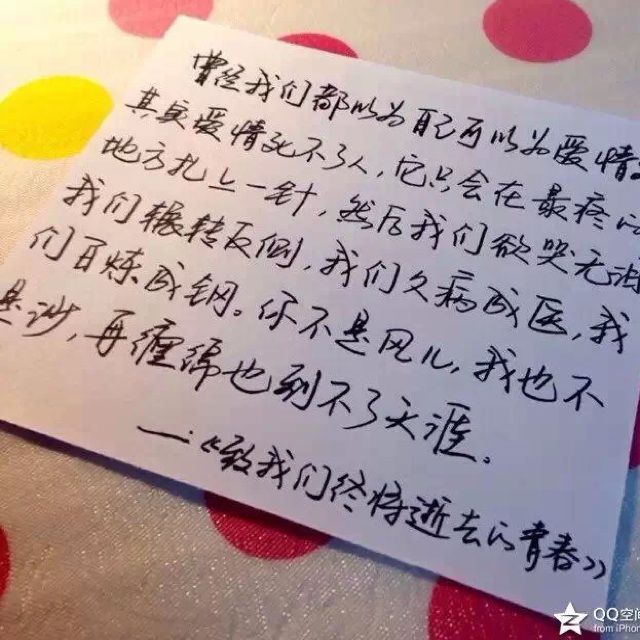 曾经我们都以为自己可以为爱情
其实爱情死不了人，它只会在最疼的
地方扎上一针，然后我们欲哭无泪
我们辗转反侧，我们久病成医，我
们百炼成钢。你不是风儿，我也不
是沙，再缠绵也到不了天涯。
——：《致我们终将逝去的青春》
QQ空间
from iPhone